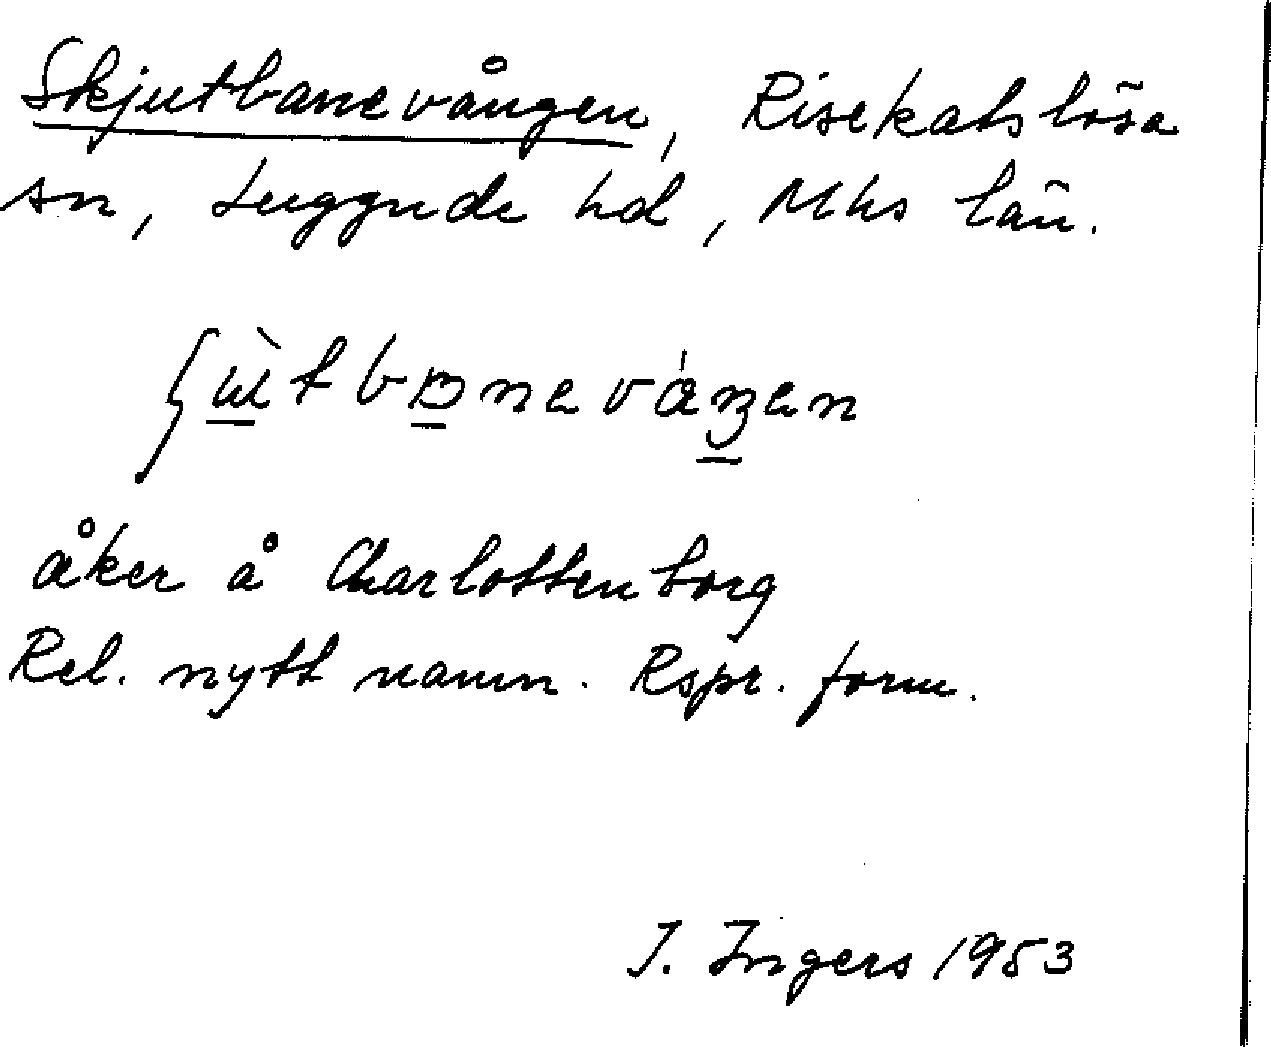 Skjutbanevången, Risekatslösa
sn, Luggude hd, Mhs län.
ʃɯ̀tbɒneváŋen
åker å Charlottenborg
Rel. nytt namn. Rspr. form.
I. Ingers 1953